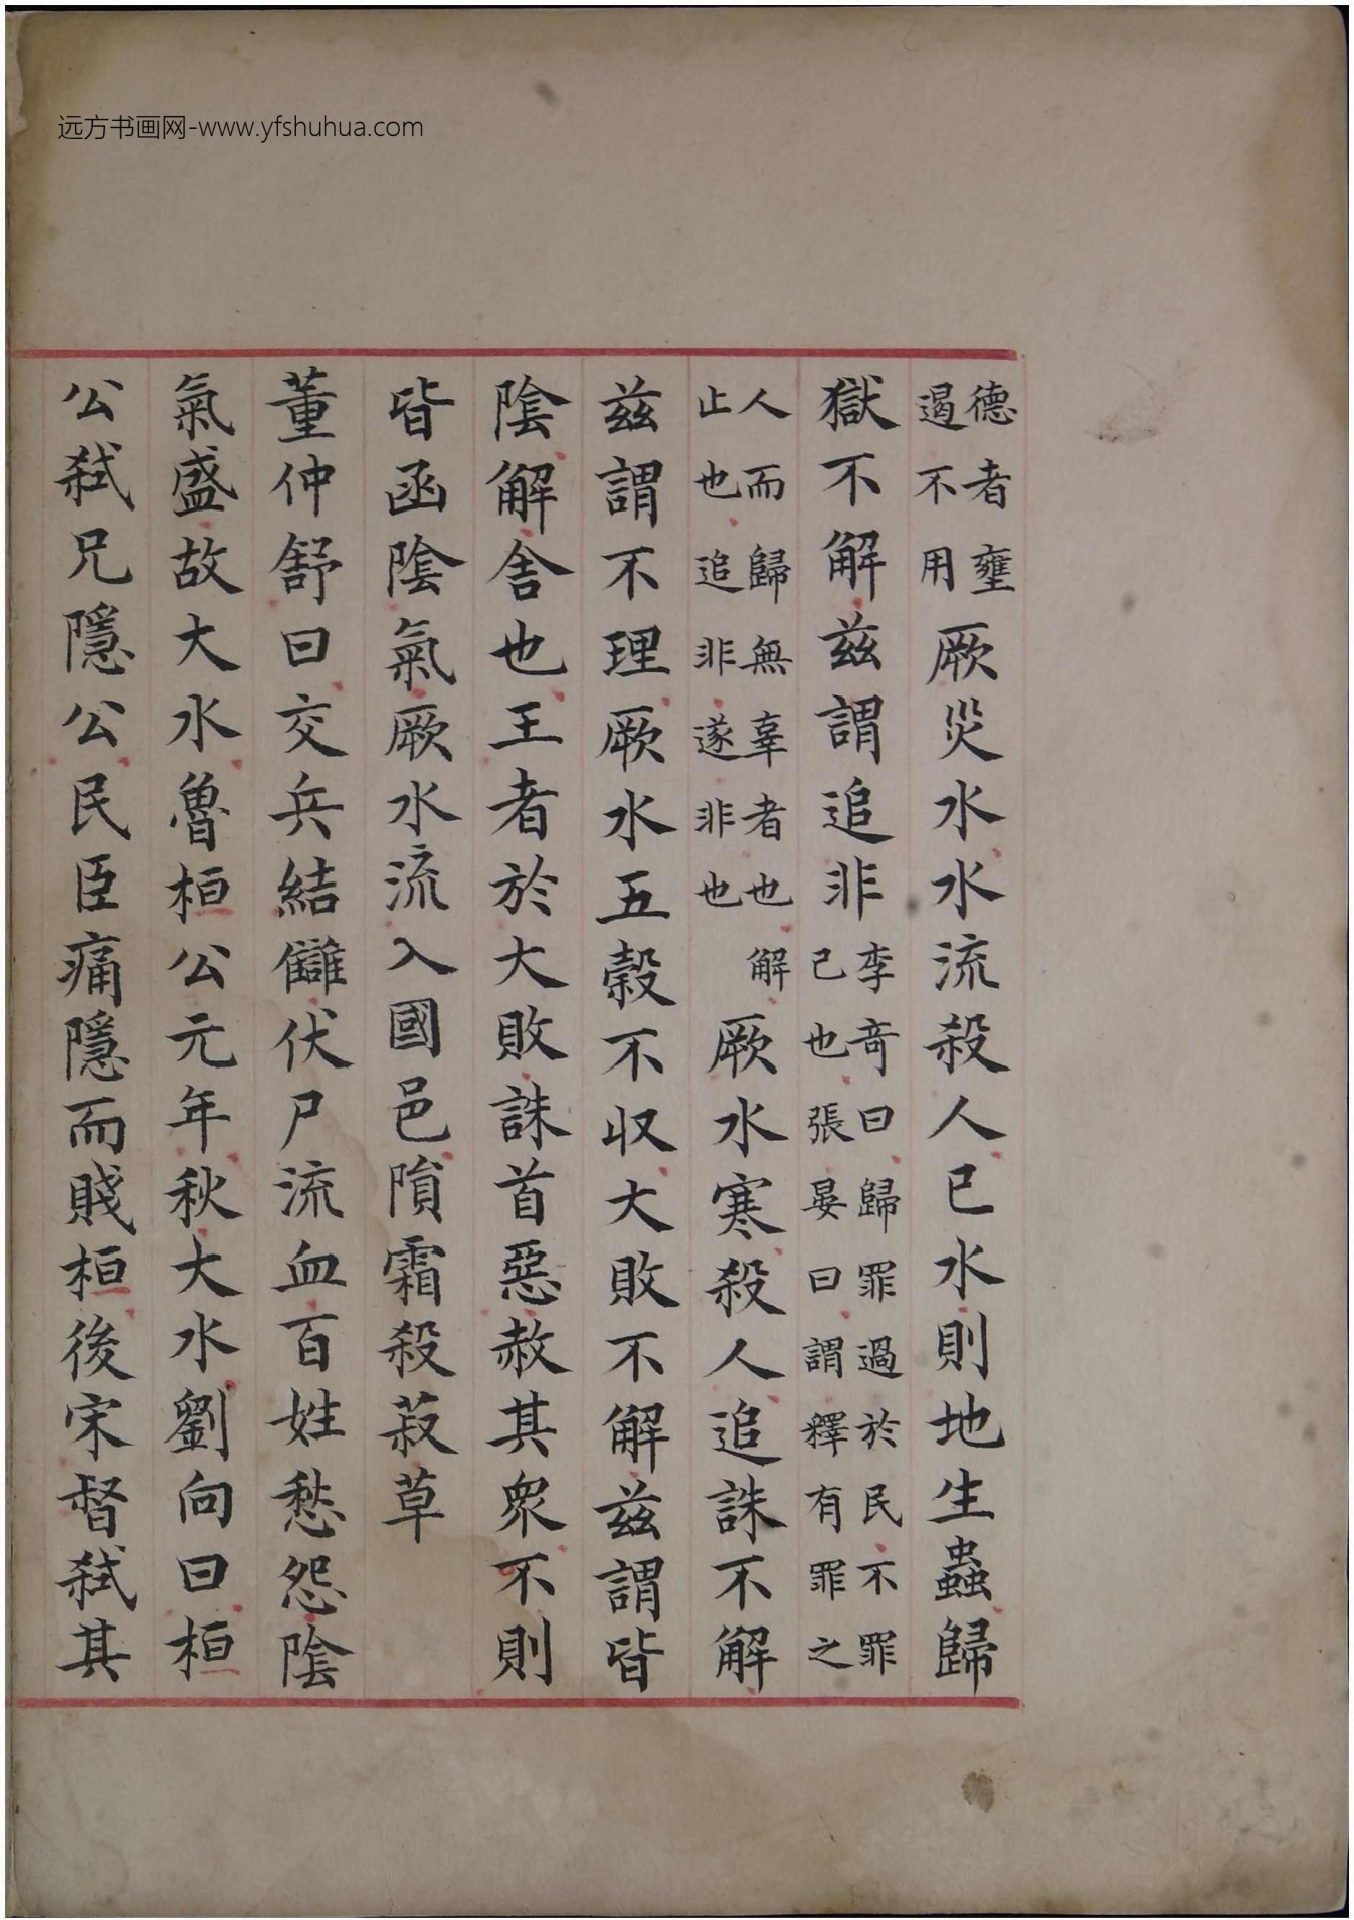 远方书画网-www.yfshuhua.com
德者壅
遏不用
厥災水水流殺人已水則地生蟲歸
獄不解茲謂追非
李奇曰歸罪過於民不罪
己也張晏曰謂釋有罪之
人而歸無辜者也解
止也追非遂非也
厥水寒殺人追誅不解
茲謂不理厥水五穀不収大敗不解茲謂皆
陰解舍也王者於大敗誅首惡赦其衆不則
皆函陰氣厥水流入國邑隕霜殺菽草
董仲舒曰交兵結讎伏尸流血百姓愁怨陰
氣盛故大水魯桓公元年秋大水劉向曰桓
公弑兄隱公民臣痛隱而賤桓後宋督弑其